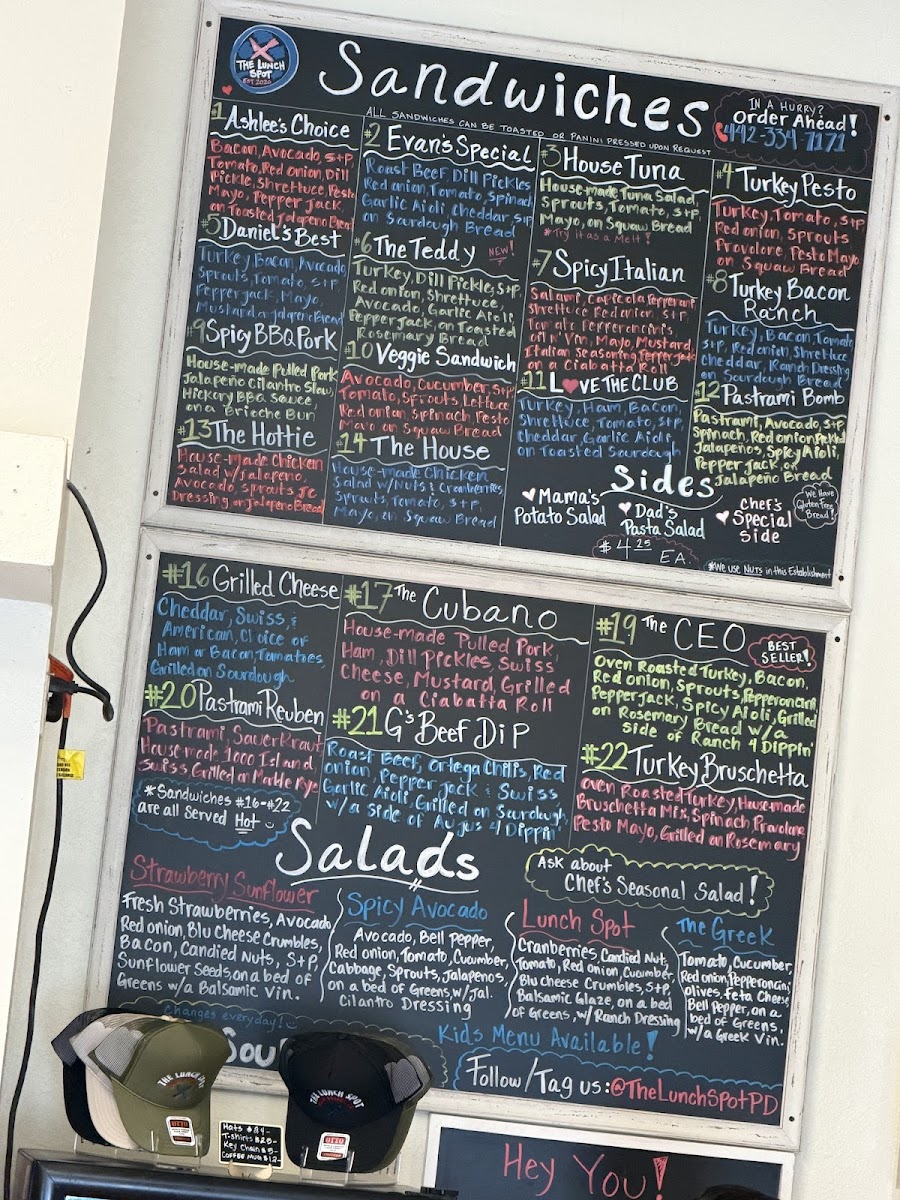 THE LUNCH SPOT
EST 2020
Sandwiches
IN A HURRY?
Order Ahead!
442-334-7171
ALL SANDWICHES CAN BE TOASTED OR PANINI PRESSED UPON REQUEST
#1 Ashlee's Choice
Bacon, Avocado, S+P,
Tomato, Red onion, Dill
Pickle, Shrettuce, Pesto
Mayo, Pepper Jack,
on Toasted Jalapeño Bread
#2 Evan's Special
Roast Beef, Dill Pickles
Red onion, Tomato, Spinach
Garlic Aioli, Cheddar, S+P
on Sourdough Bread
#3 House Tuna
House-made Tuna Salad,
Sprouts, Tomato, S+P,
Mayo, on Squaw Bread
*Try it as a Melt!
#4 Turkey Pesto
Turkey, Tomato, S+P
Red onion, Sprouts
Provolone, Pesto Mayo
on Squaw Bread
#5 Daniel's Best
Turkey, Bacon, Avocado
Sprouts, Tomato, S+P
Pepperjack, Mayo,
Mustard on Jalapeño Bread
#6 The Teddy NEW!
Turkey, Dill Pickles, S+P,
Red onion, Shrettuce,
Avocado, Garlic Aioli,
Pepper Jack, on Toasted
Rosemary Bread
#7 Spicy Italian
Salami, Capicola, Pepperoni
Shrettuce Red onion S+P
Tomato Pepperoncinis,
oil n' Vin, Mayo, Mustard
Italian Seasoning, Pepper Jack
on a Ciabatta Roll
#8 Turkey Bacon
Ranch
Turkey, Bacon, Tomato
S+P, Red onion, Shrettuce
Cheddar, Ranch Dressing
on Sourdough Bread
#9 Spicy BBQ Pork
House-made Pulled Pork
Jalapeño Cilantro Slaw,
Hickory BBQ Sauce
on a Brieche Bun
#10 Veggie Sandwich
Avocado, Cucumber, S+P
Tomato, Sprouts, Lettuce
Red onion, Spinach, Pesto
Mayo on Squaw Bread
#11 LOVE THE CLUB
Turkey, Ham, Bacon
Shrettuce, Tomato, S+P,
Cheddar, Garlic Aioli,
on Toasted Sourdough
#12 Pastrami Bomb
Pastrami, Avocado, S+P,
Spinach, Red onion, Pickled
Jalapeños, Spicy Aioli,
Pepper Jack, on
Jalapeno Bread
#13 The Hottie
House-made Chicken
Salad w/ Jalapeño,
Avocado, Sprouts, JC
Dressing on Jalapeño Bread
#14 The House
House-made Chicken
Salad w/ Nuts & Cranberries
Sprouts, Tomato, S+P,
Mayo, on Squaw Bread
Sides
Mama's
Potato Salad
Dad's
Pasta Salad
Chef's
Special
Side
We Have
Gluten Free
Bread!
$4.25
EA.
*We use NUTS in this Establishment
#16 Grilled Cheese
Cheddar, Swiss, &
American, Choice of
Ham or Bacon, Tomatoes,
Grilled on Sourdough
#17 The Cubano
House-made Pulled Pork,
Ham, Dill Pickles, Swiss
Cheese, Mustard, Grilled
on a Ciabatta Roll
#19 The CEO
BEST
SELLER!
Oven Roasted Turkey, Bacon,
Red onion, Sprouts, Pepperoncini,
Pepper Jack, Spicy Aioli, Grilled
on Rosemary Bread w/a
side of Ranch 4 Dippin'
#20 Pastrami Reuben
Pastrami, Sauerkraut
House-made 1000 Island
Swiss, Grilled on Marble Rye
#21 G's Beef Dip
Roast Beef, Ortega Chilis, Red
onion, Pepper jack & Swiss
Garlic Aioli, Grilled on Sourdough
w/a side of Augus 4 Dippin'
#22 Turkey Bruschetta
Oven Roasted Turkey, House-made
Bruschetta Mix, Spinach, Provolone,
Pesto Mayo, Grilled on Rosemary
*Sandwiches #16-#22
are all Served Hot
Salads
Ask about
Chef's Seasonal Salad!
Strawberry Sunflower
Fresh Strawberries, Avocado
Red onion, Blu Cheese Crumbles,
Bacon, Candied Nuts, S+P,
Sunflower Seeds on a bed of
Greens w/a Balsamic Vin.
Spicy Avocado
Avocado, Bell Pepper,
Red onion, Tomato, Cucumber,
Cabbage, Sprouts, Jalapenos,
on a bed of Greens, w/ Jal.
Cilantro Dressing
Lunch Spot
Cranberries, Candied Nuts,
Tomato, Red Onion, Cucumber
Blu cheese Crumbles, S+P,
Balsamic Glaze, on a bed
of Greens, w/ Ranch Dressing
The Greek
Tomato, Cucumber,
Red onion, Pepperoncini,
Olives, Feta Cheese,
Bell Pepper, on a
bed of Greens,
w/a Greek Vin.
Changes everyday!
Sou
Kids Menu Available!
Follow/Tag us: @TheLunchSpotPD
THE LUNCH SPOT
THE LUNCH SPOT
OTTO
OTTO
Hats $24-
T-shirts $25-
Key Chain $5-
Coffee Mug $12-
Hey You!